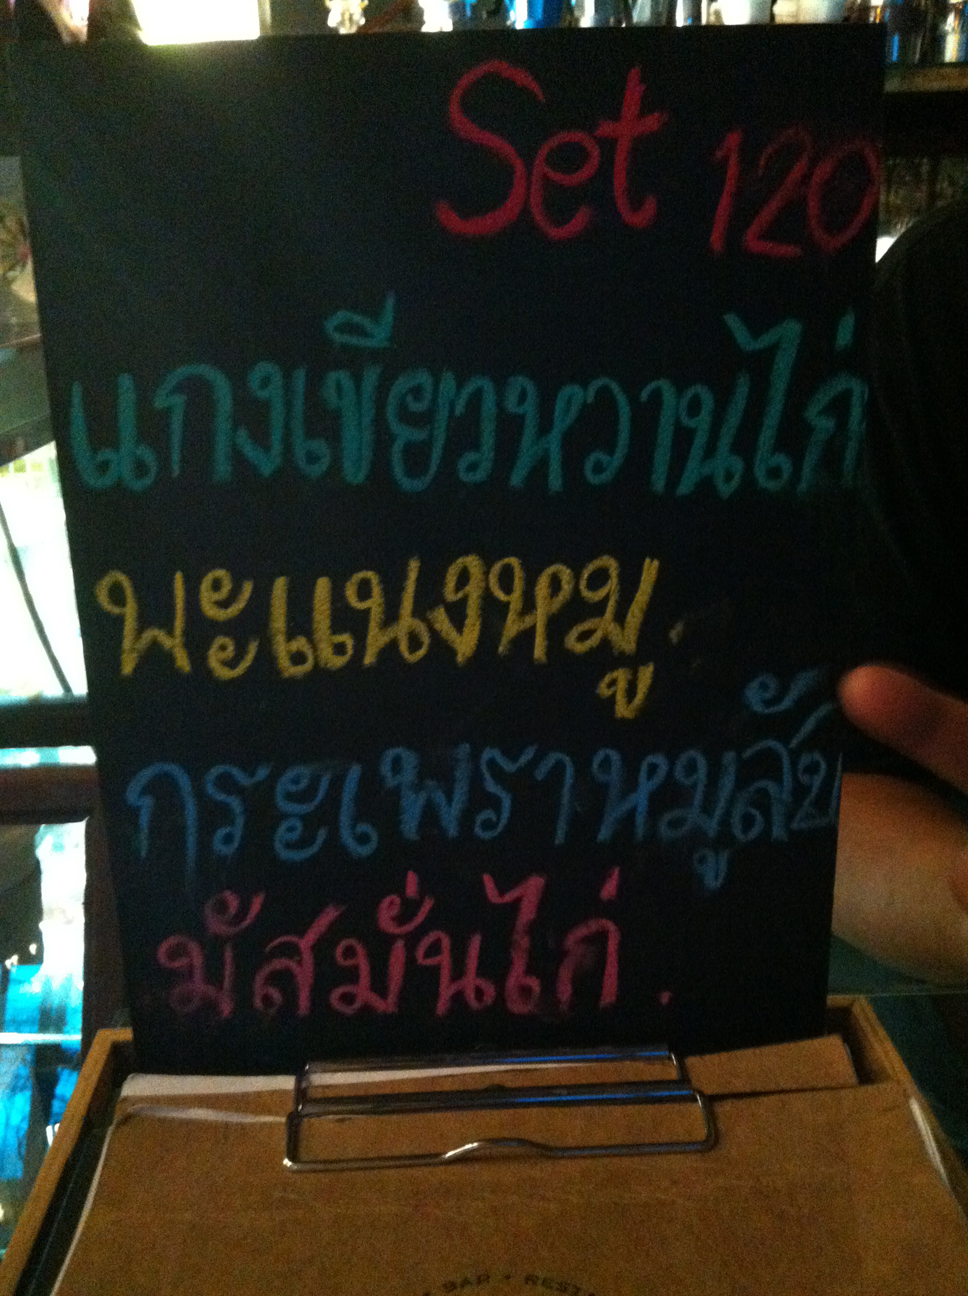 Set 120
แกงเขียวหวานไก่
พะแนงหมู.
กระเพราหมูสับ
มัสมั่นไก่.
BAR • REST